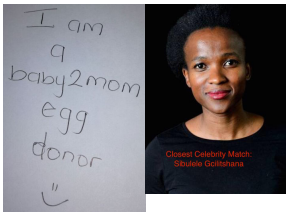 I am
a
baby2mom
egg
donor
Closest Celebrity Match:
Sibulele Gcilitshana